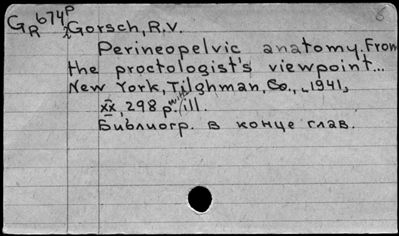 GR 674p Gorsch, R.V.
Perineopelvic anatomy. From
the proctologist's viewpoint...
New York, Tilghman, Co., [1941]
xx, 298 p. with ill.
Библиогр. в конце глав.